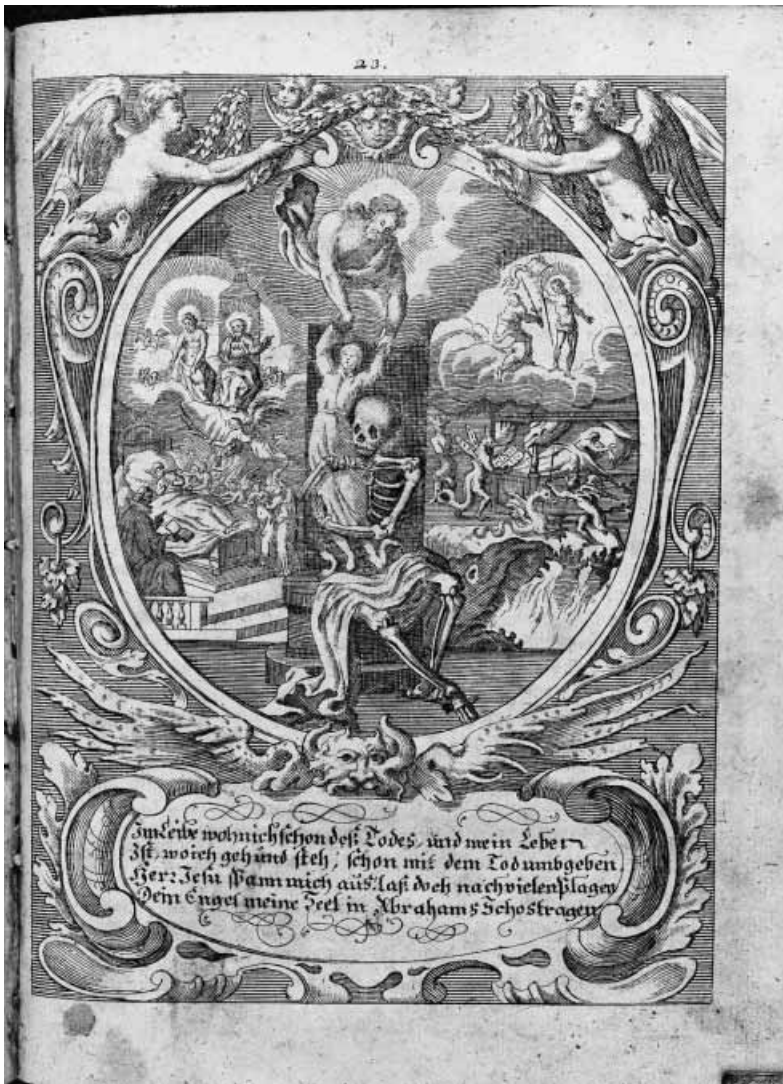 23.
Im Leibe wohn ich schon deß Todes, und mein Leben
Ist, wo ich geh und steh, schon mit dem Tod umbgeben,
Herr Jesu spann mich aus, laß doch nach vielen Plagen
Dein Engel meine Seel in Abrahams Schos tragen